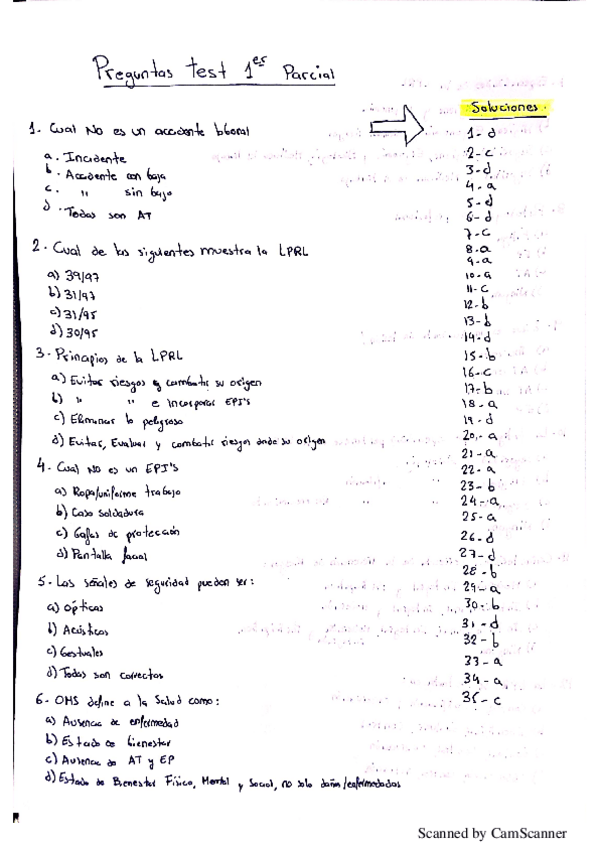 Preguntas test 1er Parcial
Soluciones.
1. Cual No es un accidente laboral
a. Incidente
b. Accidente con baja
c. " sin baja
d. Todas son AT
2. Cual de los siguientes muestra la LPRL
a) 39/97
b) 31/97
c) 31/95
d) 30/95
3. Principios de la LPRL
a) Evitar riesgos y combatir su origen
b) " " e incorporar EPI's
c) Eliminar lo peligroso
d) Evitar, Evaluar y combatir riesgos desde su origen
4. Cual No es un EPI's
a) Ropa/uniforme trabajo
b) Casco soldadura
c) Gafas de protección
d) Pantalla facial
5. Las señales de seguridad pueden ser:
a) Ópticas
b) Acústicas
c) Gestuales
d) Todas son correctas
6. OMS define a la Salud como:
a) Ausencia de enfermedad
b) Estado de bienestar
c) Ausencia de AT y EP
d) Estado de Bienestar Físico, Mental y Social, no solo daños/enfermedades
1-d
2-c
3-d
4-a
5-d
6-d
7-c
8-a
9-a
10-a
11-c
12-b
13-b
14-d
15-b
16-c
17-b
18-a
19-d
20-a
21-a
22-a
23-b
24-a
25-a
26-d
27-d
28-b
29-a
30-b
31-d
32-b
33-a
34-a
35-c
Scanned by CamScanner